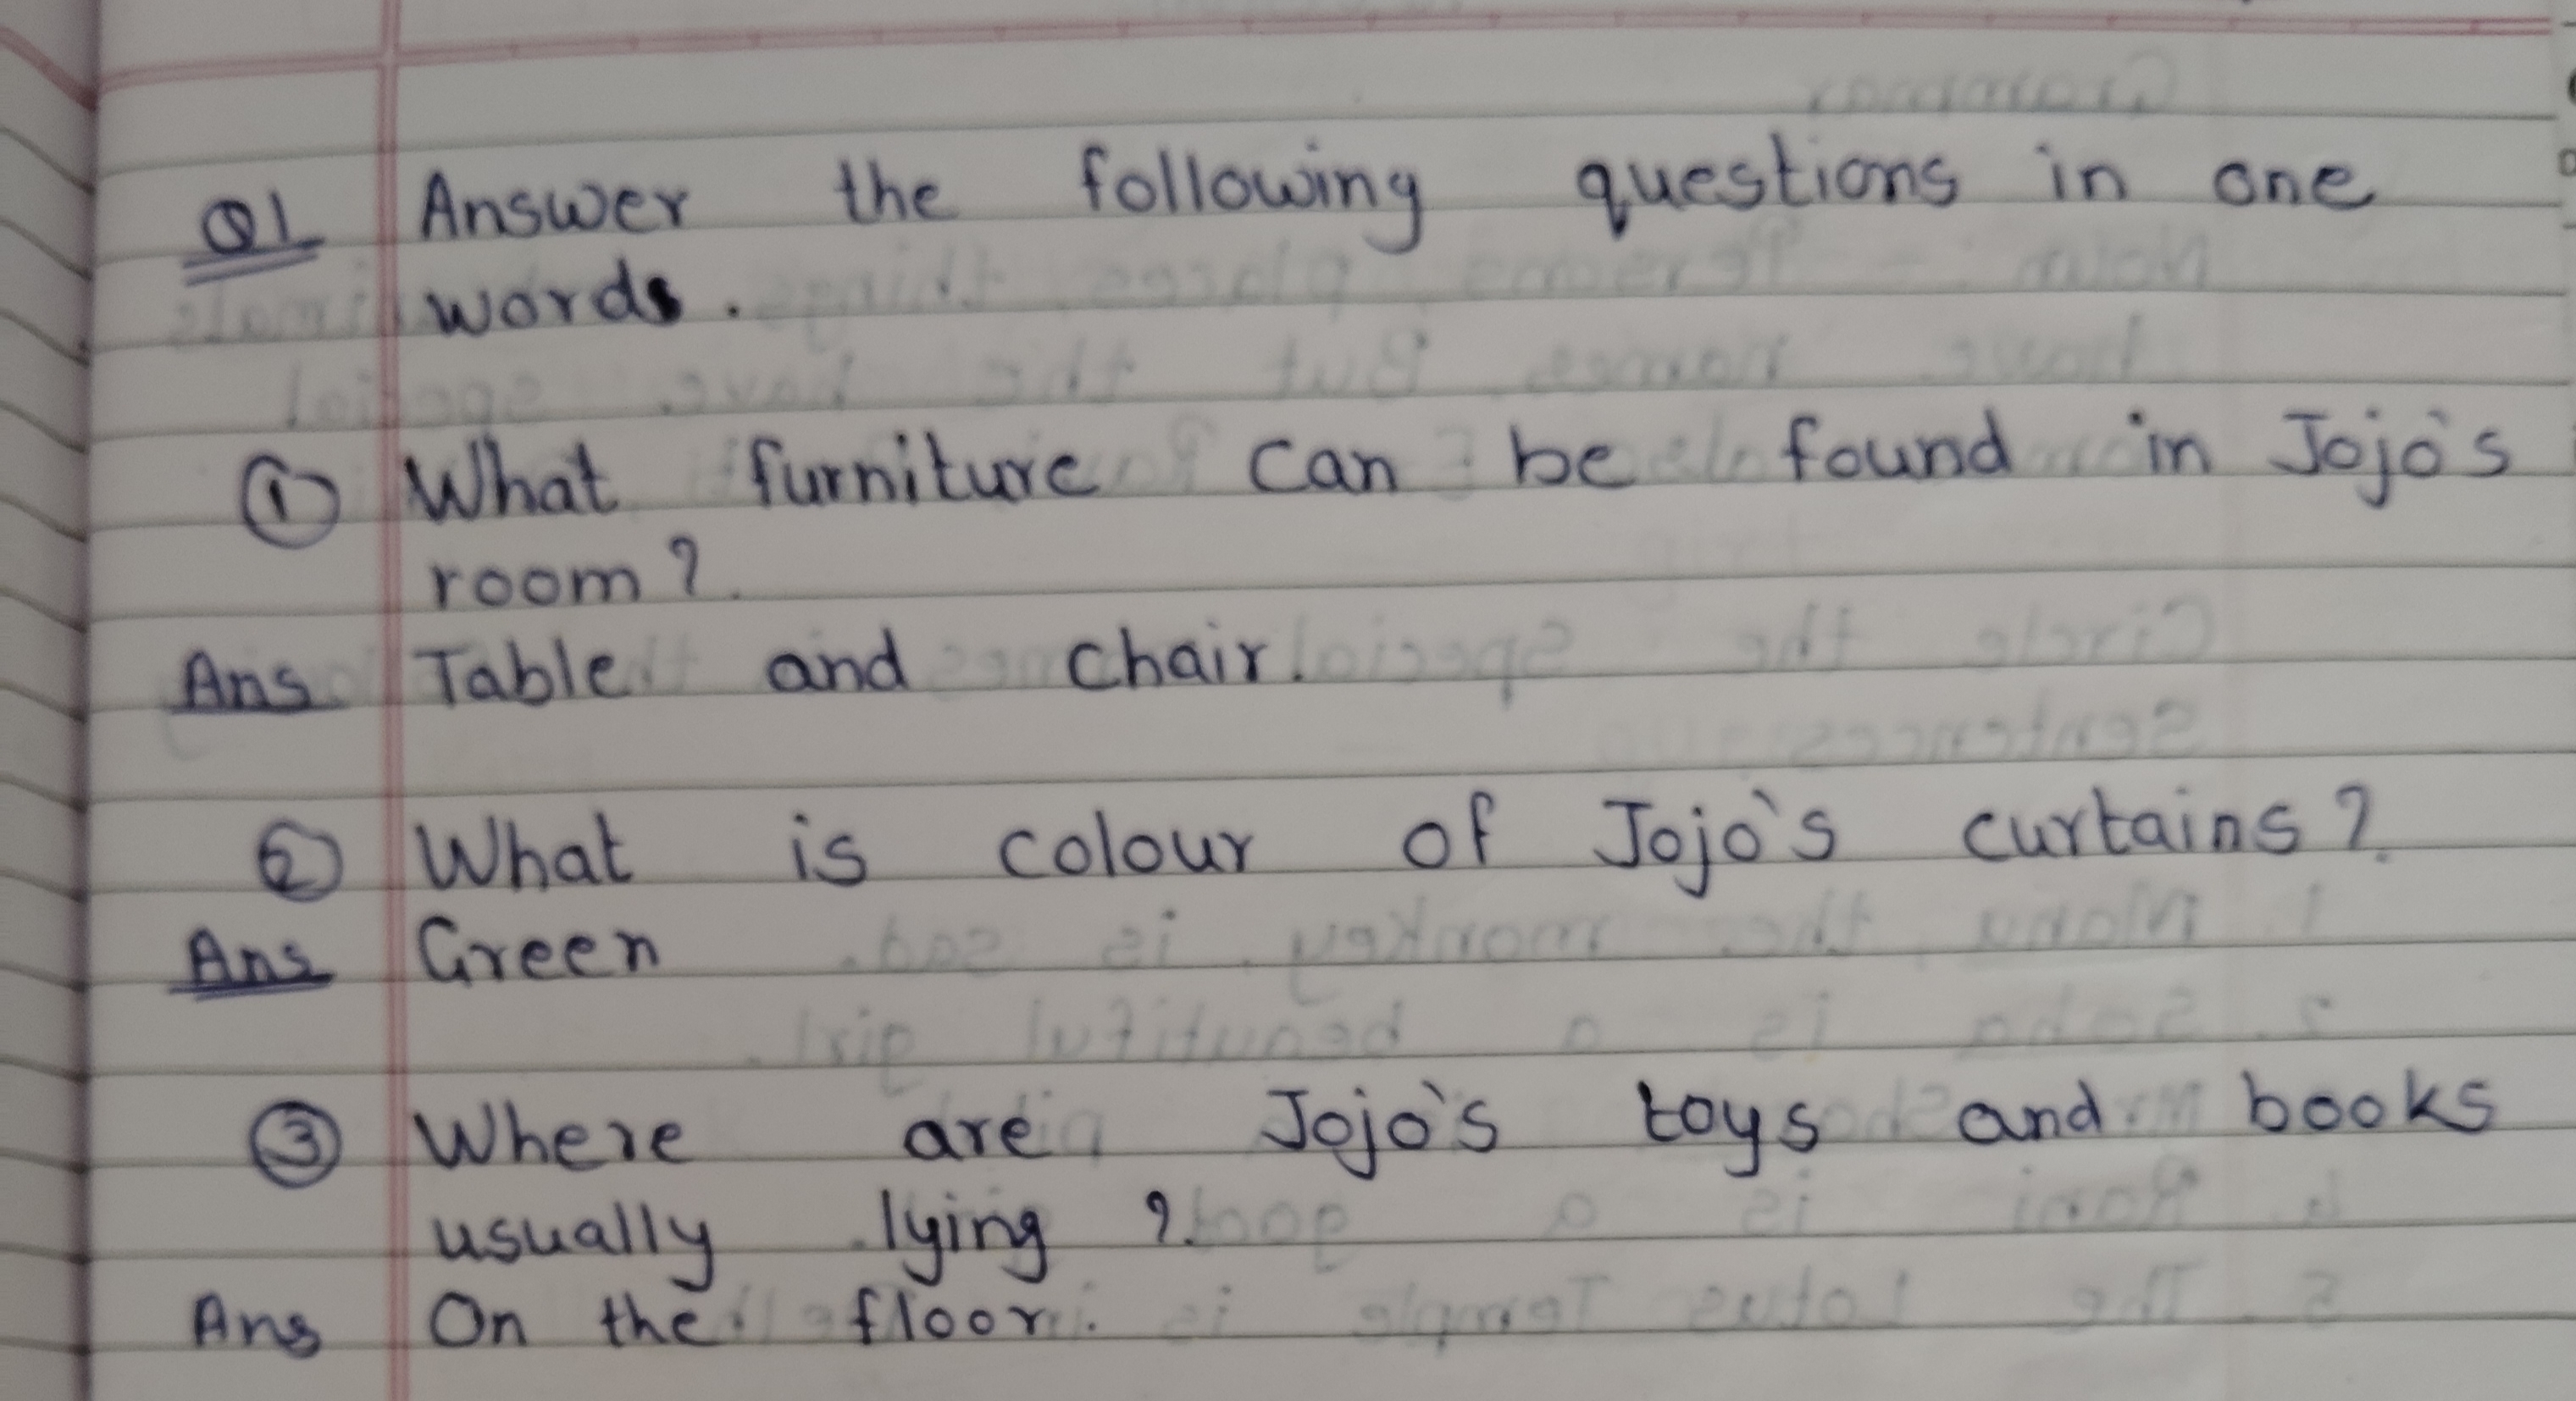 Q1 Answer the following questions in one
words.
① What furniture can be found in Jojo's
room?
Ans Table and chair.
② What is colour of Jojo's curtains?
Ans Green
③ Where are Jojo's toys and books
usually lying ?
Ans On the floor.